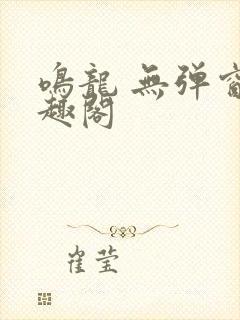 鳴龍 無弹窗
趣閣
崔莹